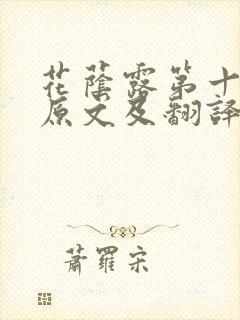 花蔭露第十
原文及翻譯
蕭羅宋